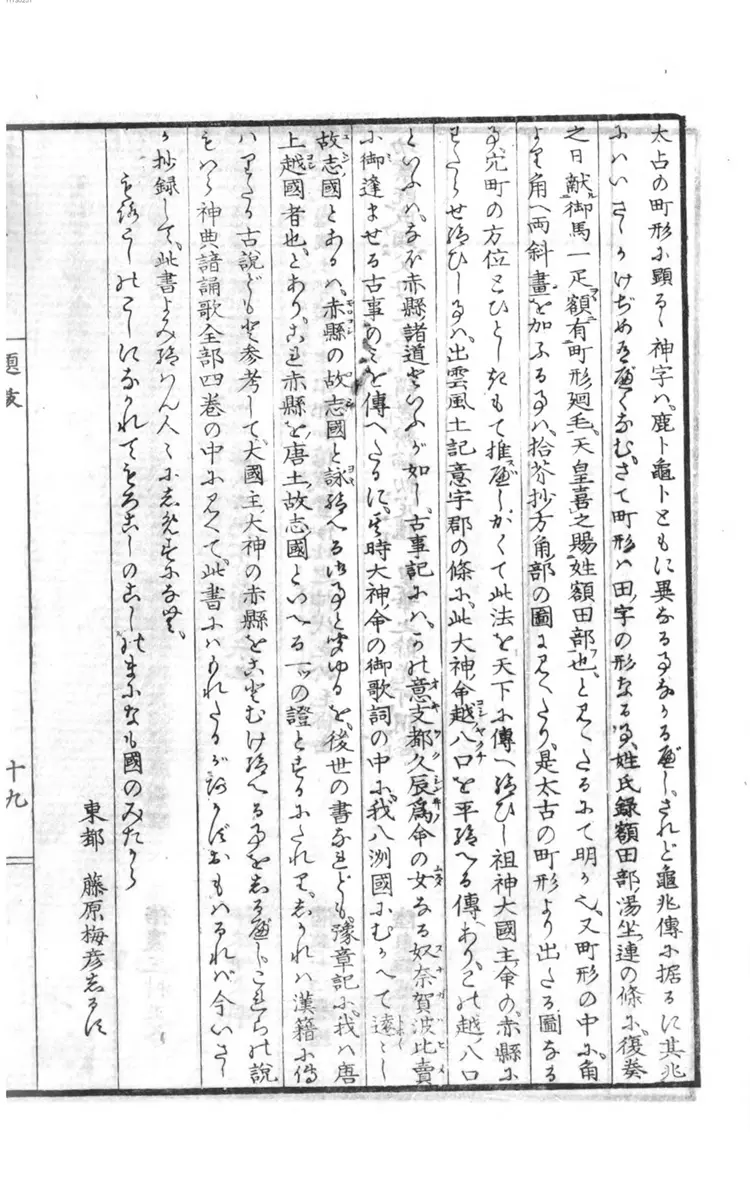 太占の町形に顕るゝ神字ハ、鹿卜亀卜ともに異なる事なかる べし、されど亀兆傳に据るに其兆
にハいさゝかけぢめ有 べくなむ、さて町形ハ田字の形なる事、姓氏録額田部湯坐連の條に、復奏
之日献御馬一疋額有町形廻毛、天皇喜之賜姓額田部也、と見へたるにて明か也、又町形の中に、角
より角へ両斜畫を加ふる事ハ、拾芥抄方角部の圖に見へたり、是太古の町形より出たる圖なる
事、宍町の方位とひとしきもて推べし、かくて此法を天下に傳へ給ひし祖神大國主命の、赤縣に
わたらせ給ひし事ハ、出雲風土記意宇郡の條に、此大神命越八口を平給へる傳あり、この越八口
といふハ、なほ赤縣諸道といふが如し、古事記にハ、この意支都久辰為命の女なる奴奈賀波比賣
に御逢ませる古事のみを傳へたるに、其時大神命の御歌詞の中に、我八洲國にむかへて遠々し
故志國とあるハ、赤縣の故志國と詠給へる御事と聞ゆるを、後世の書なれども、豫章記に、我ハ唐
上越國者也、とあり、これ赤縣を、唐土故志國といへる一ツの證とするにたれり、しかれハ漢籍に傳
ハりたる古説どもを参考して、大國主大神の赤縣をことむけ給へる事をしるべし、これらの説
をハら神典諳誦歌全部四巻の中に見へて、此書にハもれたるが おもハるれば今いさゝ
か抄録して、此書よみ給はん人々にしめすになむ、
もろこしのこしにながれてもろこしのこしのまになも國のみたから
東都　藤原梅彦しるす
題
十九